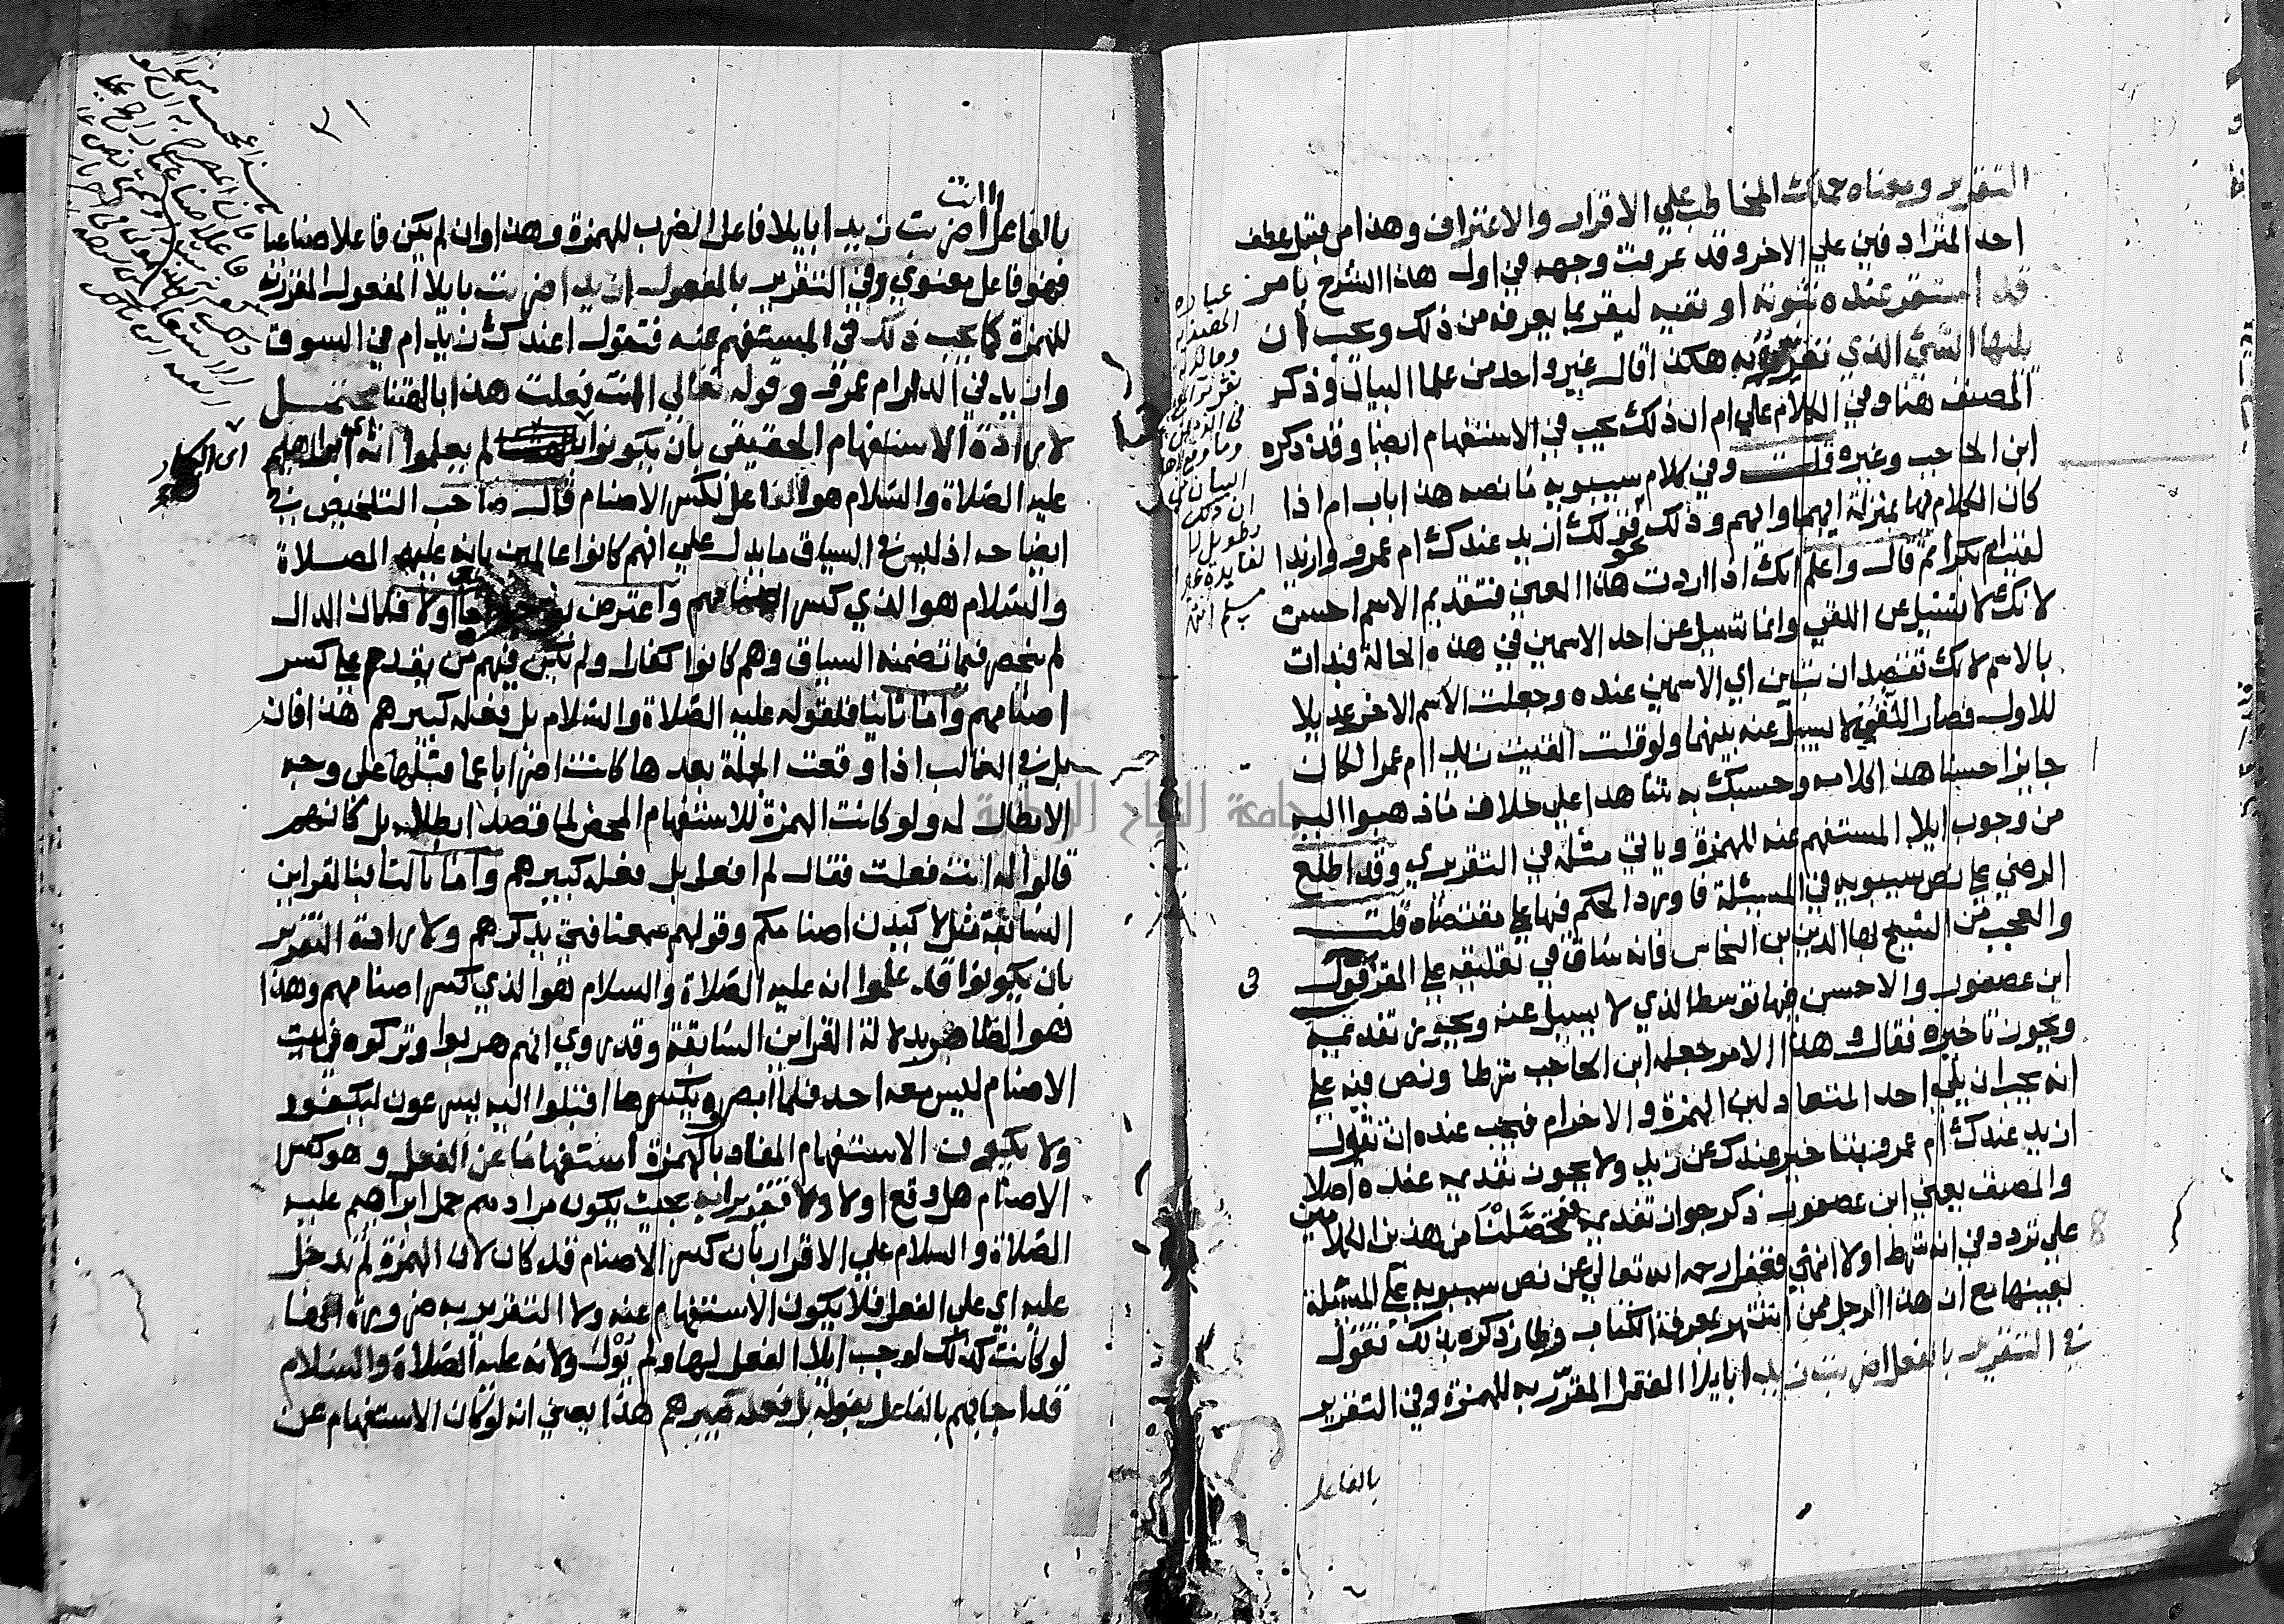 التقرير ومعناه حملك المخاطب علي الاقرار والاعتراف وهذا من قبيل عطف
احد المترادفين علي الاخر وقد عرفت وجهه في اول هذا الشرح بامر
قد استقر عنده ثبوته او نفيه ليقر بما يعرفه من ذلك ويجب ان
يليها الشئ الذي تقرره به هكذا قال غير واحد من علما البيان وذكر
المصنف هنا وفي الكلام علي ام ان ذلك يجب في الاستفهام ايضا وقد ذكره
ابن الحاجب وغيره قلت وفي كلام سيبويه ما نصه هذا باب ام اذا
كان الكلام بها بمنزلة ايهما وايهم وذلك قولك ازيد عندك ام عمرو وازيدا
لقيت ام بكرا ثم قال واعلم انك اذا اردت هذا المعني فتقديم الاسم احسن
لانك لا تسئل عن اللقي وانما تسئل عن احد الاسمين في هذه الحالة فبدات
بالاسم لانك تقصد ان تبين اي الاسمين عنده وجعلت الاسم الاخر عديلا
للاول فصار الذي لا يسئل عنه بينهما ولو قلت القيت زيدا ام عمرا لكان
جايزا حسنا هذا كلامه وحسبك به شاهدا علي خلاف ما ذهبوا اليه
من وجوب ايلا المستفهم عنه للهمزة وياتي مثله في التقريري وقد اطلع
الرضي علي نص سيبويه في المسئلة فاورد الحكم فيها علي مقتضاه قلت
والعجب من الشيخ بها الدين بن النحاس فانه ساق في تعليقه علي المقرب قول
ابن عصفور والاحسن فيها توسط الذي لا يسئل عنه ويجوز تقديمه
ويجوز تاخيره فقال هذا الامر جعله ابن الحاجب شرطا ونص فيه علي
انه يجب ان يلي احد المتعادلين الهمزة والاخر ام فيجب عنده ان تقول
ازيد عندك ام عمرو بتاخير عندك عن زيد ولا يجوز تقديمه عنده اصلا
والمصنف يعني ابن عصفور ذكر جواز تقديمه فتحصلنا من هذين الكلامين
علي تردد في انه شرط اولا انتهي فغفل رحمه الله تعالي عن نص سيبويه علي المسئلة
بعينها مع ان هذا الرجل ممن اشتهر بمعرفة الكتاب وطار ذكره بذلك تقول
في التقرير بالفعل اضربت زيدا بايلا الفعل المقرر به للهمزة وفي التقرير
بالفاعل
عبارة
المصنف
٣١
بالفاعل اانت ضربت زيدا بايلا فاعل الضرب للهمزة وهذا وان لم يكن فاعلا صناعيا
فهو فاعل معنوي وفي التقرير بالمفعول ازيدا ضربت بايلا المفعول المقرر به
للهمزة كما يجب ذلك في المستفهم عنه فتقول اعندك زيد ام في السوق
وازيد في الدار ام عمرو وقوله تعالي اانت فعلت هذا بالهتنا محتمل
لارادة الاستفهام الحقيقي بان يكونوا لم يعلموا انه اي ابراهيم
عليه الصلاة والسلام هو الفاعل لكسر الاصنام قال صاحب التلخيص في
ايضاحه اذ ليس في السياق ما يدل علي انهم كانوا عالمين بانه عليه الصلاة
والسلام هو الذي كسر اصنامهم واعترض اما اولا فلان الدال
لم ينحصر فيما تضمنه السياق وهم كانوا كفارا ولم يكن فيهم من يقدم علي كسر
اصنامهم واما ثانيا فلقوله عليه الصلاة والسلام بل فعله كبيرهم هذا فان
بل في الغالب اذا وقعت الجملة بعدها كانت اضرابا عما قبلها علي وجه
الابطال له ولو كانت الهمزة للاستفهام المحض لما قصد ابطاله بل كانهم
قالوا له اانت فعلت فقال لم افعل بل فعله كبيرهم واما ثالثا فبالقراين
السابقة مثل لاكيدن اصنامكم وقولهم سمعنا فتي يذكرهم ولارادة التقرير
بان يكونوا قد علموا انه عليه الصلاة والسلام هو الذي كسر اصنامهم وهذا
هو الظاهر بدلالة القراين السابقة وقد روي انهم هربوا وتركوه في بيت
الاصنام ليس معه احد فلما ابصروه يكسرها اقبلوا اليه يسرعون ليكفوه
ولا يكون الاستفهام المفاد بالهمزة استفهاما عن الفعل وهو كسر
الاصنام هل وقع اولا ولا تقريرا به بحيث يكون مرادهم حمل ابراهيم عليه
الصلاة والسلام علي الاقرار بان كسر الاصنام قد كان لان الهمزة لم تدخل
عليه اي علي الفعل فلا يكون الاستفهام عنه ولا التقرير به ضرورة انها
لو كانت كذلك لوجب ايلا الفعل لها ولم يول ولانه عليه الصلاة والسلام
قد اجابهم بالفاعل بقوله بل فعله كبيرهم هذا يعني انه لو كان الاستفهام عن
جامعة النجاح الوطنية